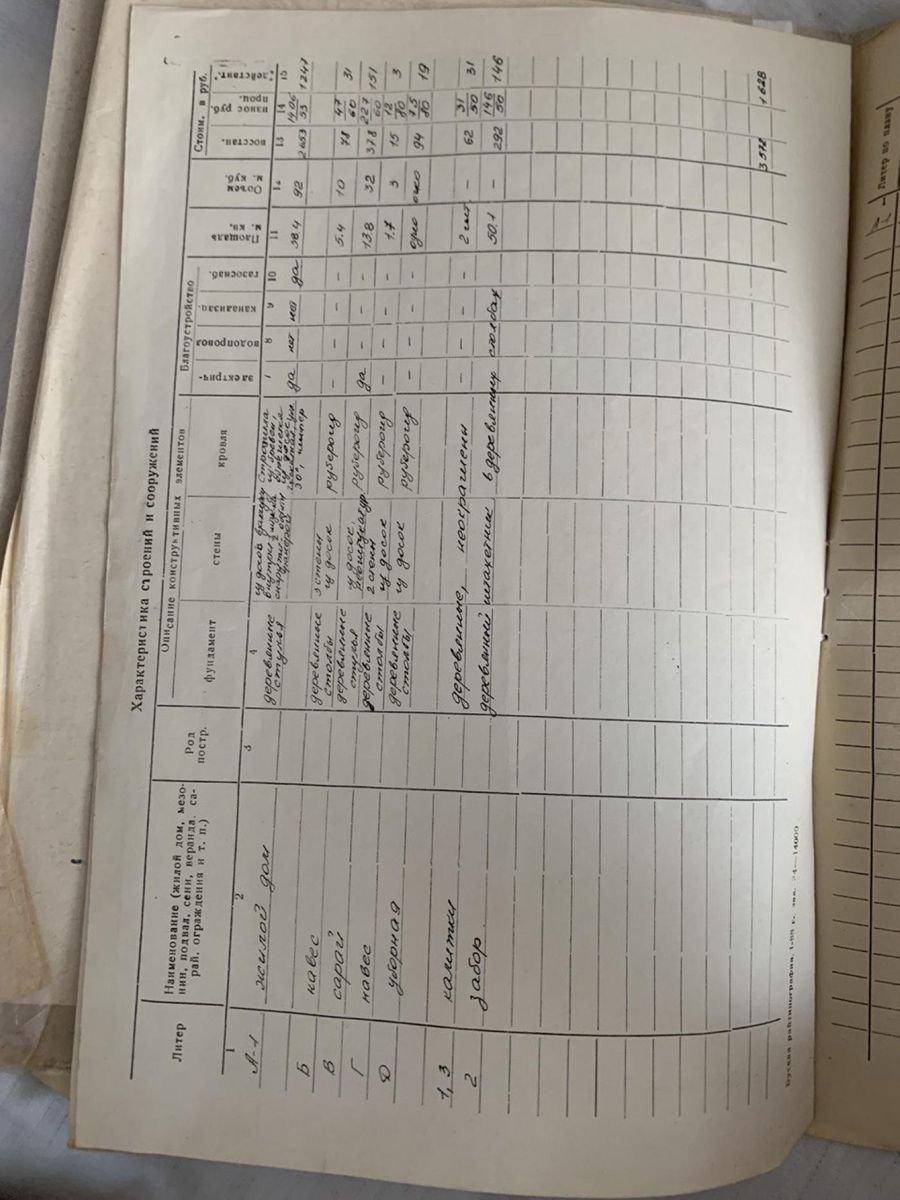 Характеристика строений и сооружений
Литер
Наименование (жилой дом, мезо-
нин, подвал, сени, веранда, са-
рай, ограждения и т. п.)
Род
постр.
Описание конструктивных элементов
фундамент
стены
кровля
Благоустройство
электрич.
водопровод
канализац.
газоснаб.
Площадь
м. кв.
Объем
м. куб.
Стоим. в руб.
восстан.
износ руб.
проц.
действит.
1 2 3 4 7 8 9 10 11 13 14 15
А-1 жилой дом деревянные стулья да нет нет да 38,4 92 2653 1406 53 1247
Б навес деревянные столбы 3 стены из досок рубероид - - - - 5.4 10 78 47 60 31
В сарай деревянные стулья из досок, рубероид да - - - 13.8 32 378 227 60 151
Г навес деревянные столбы 2 стены из досок рубероид - - - - 1.7 3 15 12 80 3
Д уборная деревянные столбы из досок рубероид - - - - очко очко 94 75 80 19
1,3 калитки деревянные, неокрашены - - - - 2 шт - 62 31 50 31
2 забор деревянный штакетник в деревянных столбах 50,1 - 292 146 50 146
3572 1628
Буская райтипография, 1-88 г. зак. 24—14000
Литер по плану